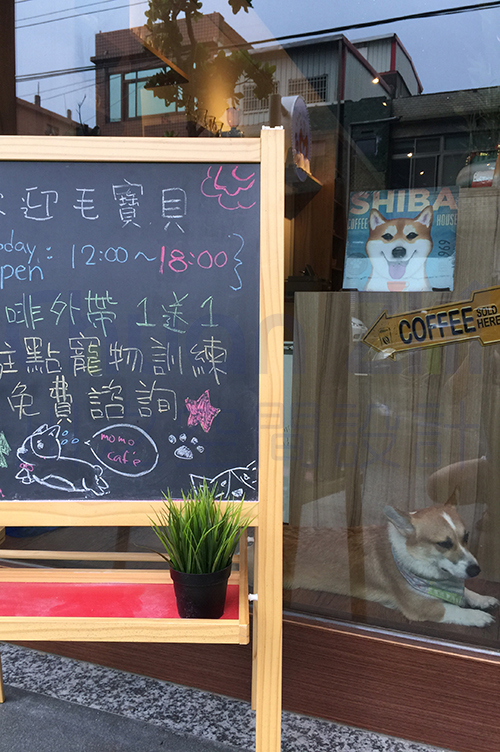 迎毛寶貝
Today :
Open
12:00~18:00
啡外帶 1送1
點寵物訓練
免費諮詢
momo
cafe
SHIBA
COFFEE
HOUSE
COFFEE
SOLD
HERE